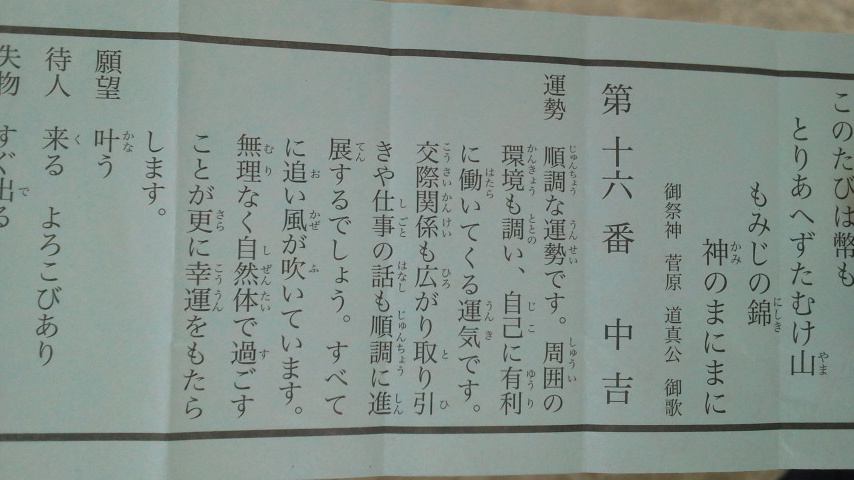 このたびは幣も
とりあへずたむけ山
もみじの錦
神のまにまに
御祭神 菅原 道真公 御歌
第十六番 中吉
運勢 順調な運勢です。周囲の
環境も調い、自己に有利
に働いてくる運気です。
交際関係も広がり取り引
きや仕事の話も順調に進
展するでしょう。すべて
に追い風が吹いています。
無理なく自然体で過ごす
ことが更に幸運をもたら
します。
願望 叶う
待人 来る よろこびあり
失物 すぐ出る